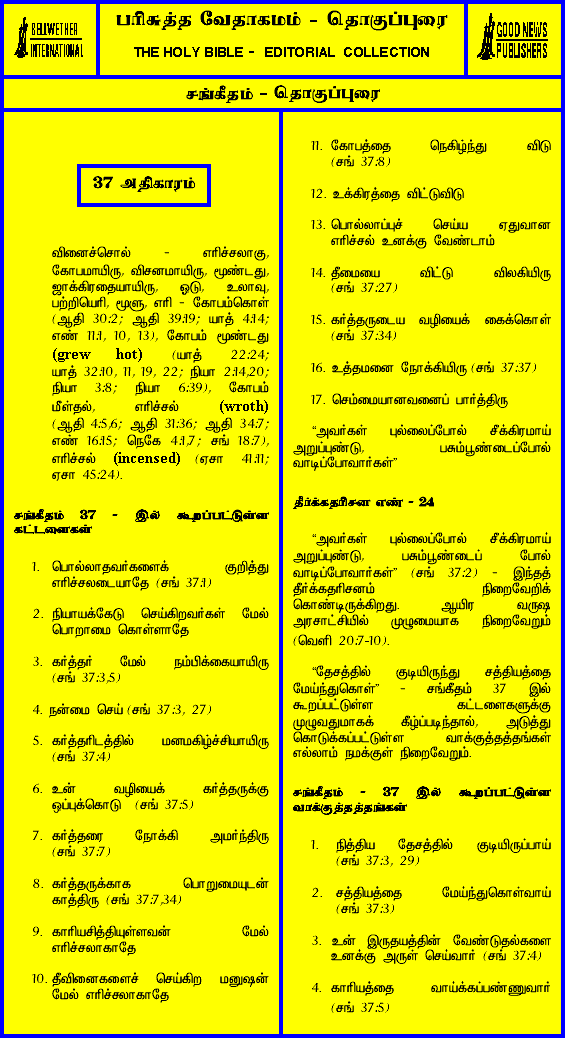 BELLWETHER
INTERNATIONAL
பரிசுத்த வேதாகமம் - தொகுப்புரை
THE HOLY BIBLE - EDITORIAL COLLECTION
GOOD NEWS
PUBLISHERS
சங்கீதம் - தொகுப்புரை
37 அதிகாரம்
வினைச்சொல் - எரிச்சலாகு,
கோபமாயிரு, விசனமாயிரு, மூண்டது,
ஜாக்கிரதையாயிரு, ஓடு, உலாவு,
பற்றியெரி, மூளு, எரி - கோபம்கொள்
(ஆதி 30:2; ஆதி 39:19; யாத் 4:14;
எண் 11:1, 10, 13), கோபம் மூண்டது
(grew hot) (யாத் 22:24;
யாத் 32:10, 11, 19, 22; நியா 2:14,20;
நியா 3:8; நியா 6:39), கோபம்
மீள்தல், எரிச்சல் (wroth)
(ஆதி 4:5,6; ஆதி 31:36; ஆதி 34:7;
எண் 16:15; நெகே 4:1,7; சங் 18:7),
எரிச்சல் (incensed) (ஏசா 41:11;
ஏசா 45:24).
சங்கீதம் 37 - இல் கூறப்பட்டுள்ள
கட்டளைகள்
1. பொல்லாதவர்களைக் குறித்து
எரிச்சலடையாதே (சங் 37:1)
2. நியாயக்கேடு செய்கிறவர்கள் மேல்
பொறாமை கொள்ளாதே
3. கர்த்தர் மேல் நம்பிக்கையாயிரு
(சங் 37:3,5)
4. நன்மை செய் (சங் 37:3, 27)
5. கர்த்தரிடத்தில் மனமகிழ்ச்சியாயிரு
(சங் 37:4)
6. உன் வழியைக் கர்த்தருக்கு
ஒப்புக்கொடு (சங் 37:5)
7. கர்த்தரை நோக்கி அமர்ந்திரு
(சங் 37:7)
8. கர்த்தருக்காக பொறுமையுடன்
காத்திரு (சங் 37:7,34)
9. காரியசித்தியுள்ளவன் மேல்
எரிச்சலாகாதே
10. தீவினைகளைச் செய்கிற மனுஷன்
மேல் எரிச்சலாகாதே
11. கோபத்தை நெகிழ்ந்து விடு
(சங் 37:8)
12. உக்கிரத்தை விட்டுவிடு
13. பொல்லாப்புச் செய்ய ஏதுவான
எரிச்சல் உனக்கு வேண்டாம்
14. தீமையை விட்டு விலகியிரு
(சங் 37:27)
15. கர்த்தருடைய வழியைக் கைக்கொள்
(சங் 37:34)
16. உத்தமனை நோக்கியிரு (சங் 37:37)
17. செம்மையானவனைப் பார்த்திரு
“அவர்கள் புல்லைப்போல் சீக்கிரமாய்
அறுப்புண்டு, பசும்பூண்டைப்போல்
வாடிப்போவார்கள்”
தீர்க்கதரிசன எண் - 24
“அவர்கள் புல்லைப்போல் சீக்கிரமாய்
அறுப்புண்டு, பசும்பூண்டைப் போல்
வாடிப்போவார்கள்” (சங் 37:2) - இந்தத்
தீர்க்கதரிசனம் நிறைவேறிக்
கொண்டிருக்கிறது. ஆயிர வருஷ
அரசாட்சியில் முழுமையாக நிறைவேறும்
(வெளி 20:7-10).
“தேசத்தில் குடியிருந்து சத்தியத்தை
மேய்ந்துகொள்” - சங்கீதம் 37 இல்
கூறப்பட்டுள்ள கட்டளைகளுக்கு
முழுவதுமாகக் கீழ்ப்படிந்தால், அடுத்து
கொடுக்கப்பட்டுள்ள வாக்குத்தத்தங்கள்
எல்லாம் நமக்குள் நிறைவேறும்.
சங்கீதம் - 37 இல் கூறப்பட்டுள்ள
வாக்குத்தத்தங்கள்
1. நித்திய தேசத்தில் குடியிருப்பாய்
(சங் 37:3, 29)
2. சத்தியத்தை மேய்ந்துகொள்வாய்
(சங் 37:3)
3. உன் இருதயத்தின் வேண்டுதல்களை
உனக்கு அருள் செய்வார் (சங் 37:4)
4. காரியத்தை வாய்க்கப்பண்ணுவார்
(சங் 37:5)